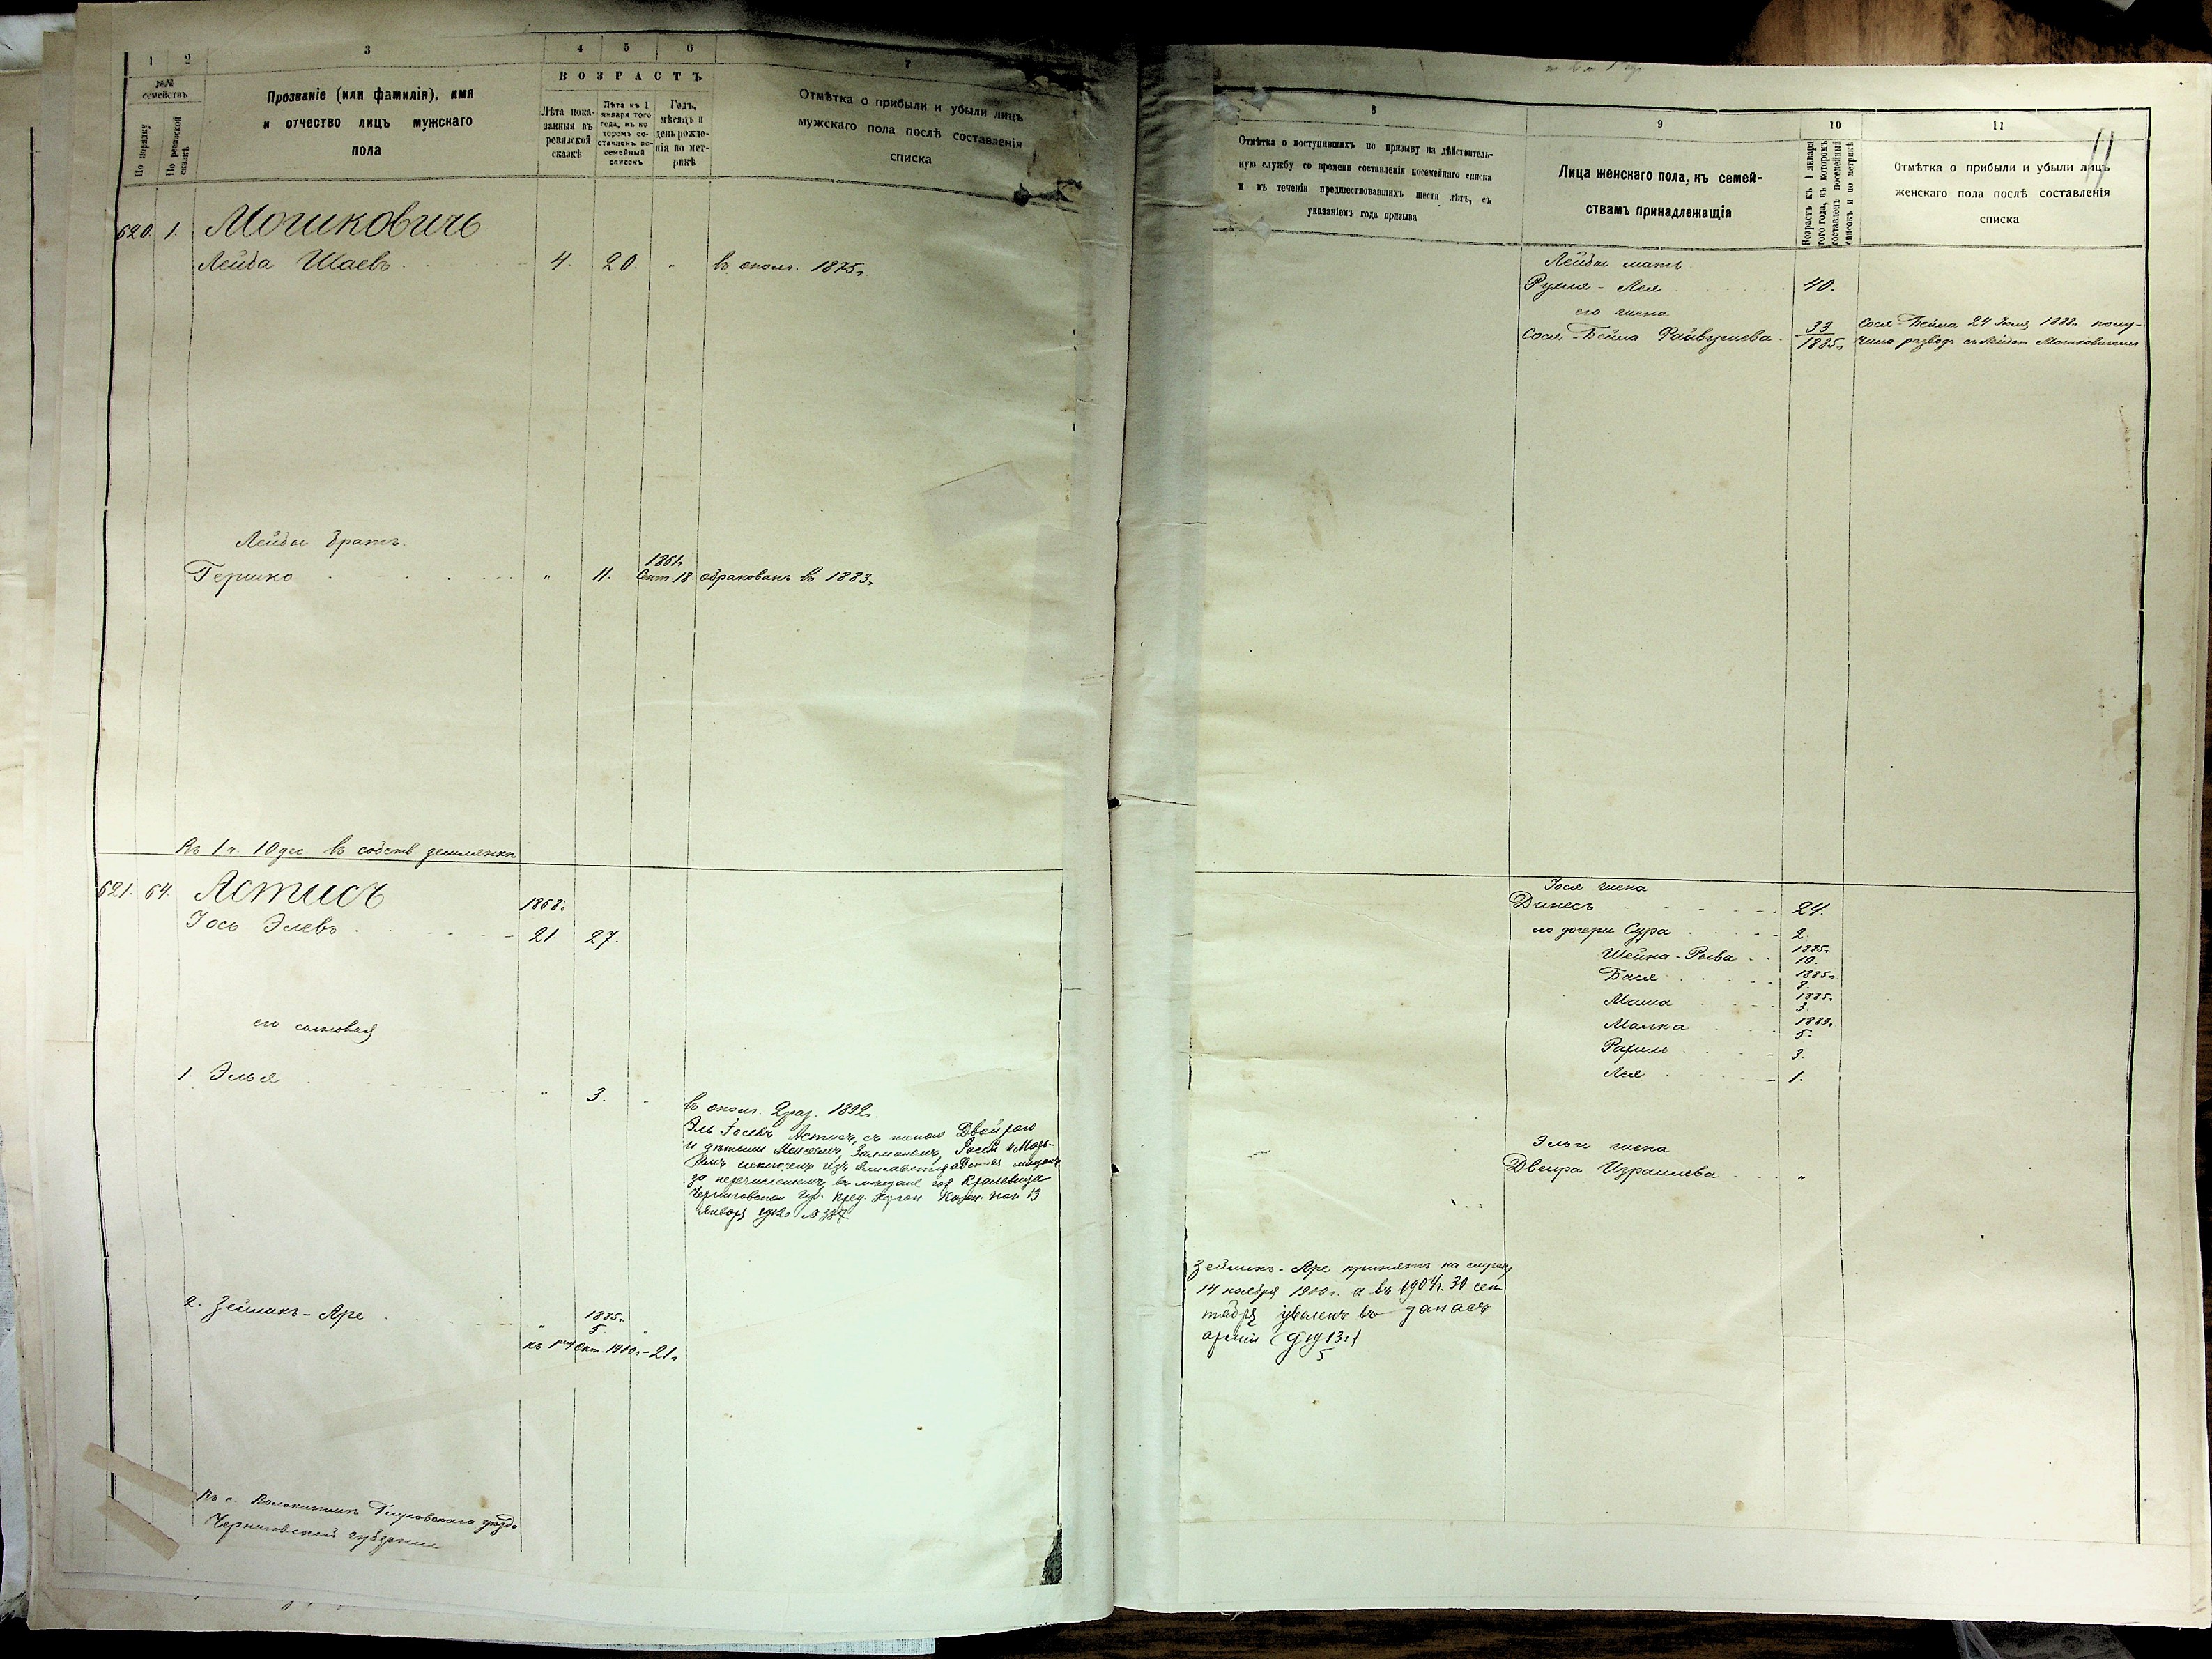 1 2 3 4 5 6 7
№№ семействъ
По порядку
По ревизской сказкѣ
Прозваніе (или фамилія), имя
и отчество лицъ мужскаго
пола
ВОЗРАСТЪ
Лѣта пока-
занныя въ
ревизской
сказкѣ
Лѣта къ 1
января того
года, въ ко
торомъ со-
ставленъ по-
семейный
списокъ
Годъ,
мѣсяцъ и
день рожде-
нія по мет-
рикѣ
Отмѣтка о прибыли и убыли лицъ
мужскаго пола послѣ составленія
списка
620. 1. Мошковичъ
Лейба Шаевъ 4. 20. " въ ополч. 1875г.
Лейбы братъ
1861г.
Гершко " 11. Окт. 18. обракованъ въ 1883г.
Въ 1 ч. 10 дес въ собств. землянки
621. 64 Астисъ
1868г.
Іось Элевъ 21 27.
его сыновья
1. Элья " 3. "
въ ополч. 2 раз. 1892г.
Эль Іосевъ Астисъ, съ женою Двойрою
и дѣтьми
за перечисленіемъ въ мещане гор Кролевца
Черниговской Губ. пред. Херсон Казен. пал 13
Января 1902г. №
2. Зейликъ-Аре " 1885г. 5. "
Окт. 1900г. - 21г.
Въ с. Волокитинъ Глуховскаго уѣзда
Черниговской губерніи
8 9 10 11
11
Отмѣтка о поступившихъ по призыву на дѣйствитель-
ную службу со времени составленія посемейнаго списка
и въ теченіи предшествовавшихъ шести лѣтъ, съ
указаніемъ года призыва
Лица женскаго пола, къ семей-
ствамъ принадлежащія
Возрастъ къ 1 января
того года, въ которомъ
составленъ посемейный
списокъ и по метрикѣ
Отмѣтка о прибыли и убыли лицъ
женскаго пола послѣ составленія
списка
Лейбы мать
Рухля-Лея 40.
его жена
Сося-Бейла Файвушева 33 1885г.
Сося-Бейла 24 1888г. полу-
чила разводъ съ Лейбой Мошковичемъ
Іося жена
Динесъ 24.
его дочери Сура 2.
Шейна-Рыва 1885г. 10.
Бася 1885г. 8.
Маша 1885г. 3.
Малка 1889г. 5.
Рахиль 3.
Лея 1.
Эльи жена
Двейра Израилева "
Зейликъ-Аре принятъ на службу
14 ноября 1900г. а въ 1904г. 30 сен
тября уволенъ въ запасъ
арміи